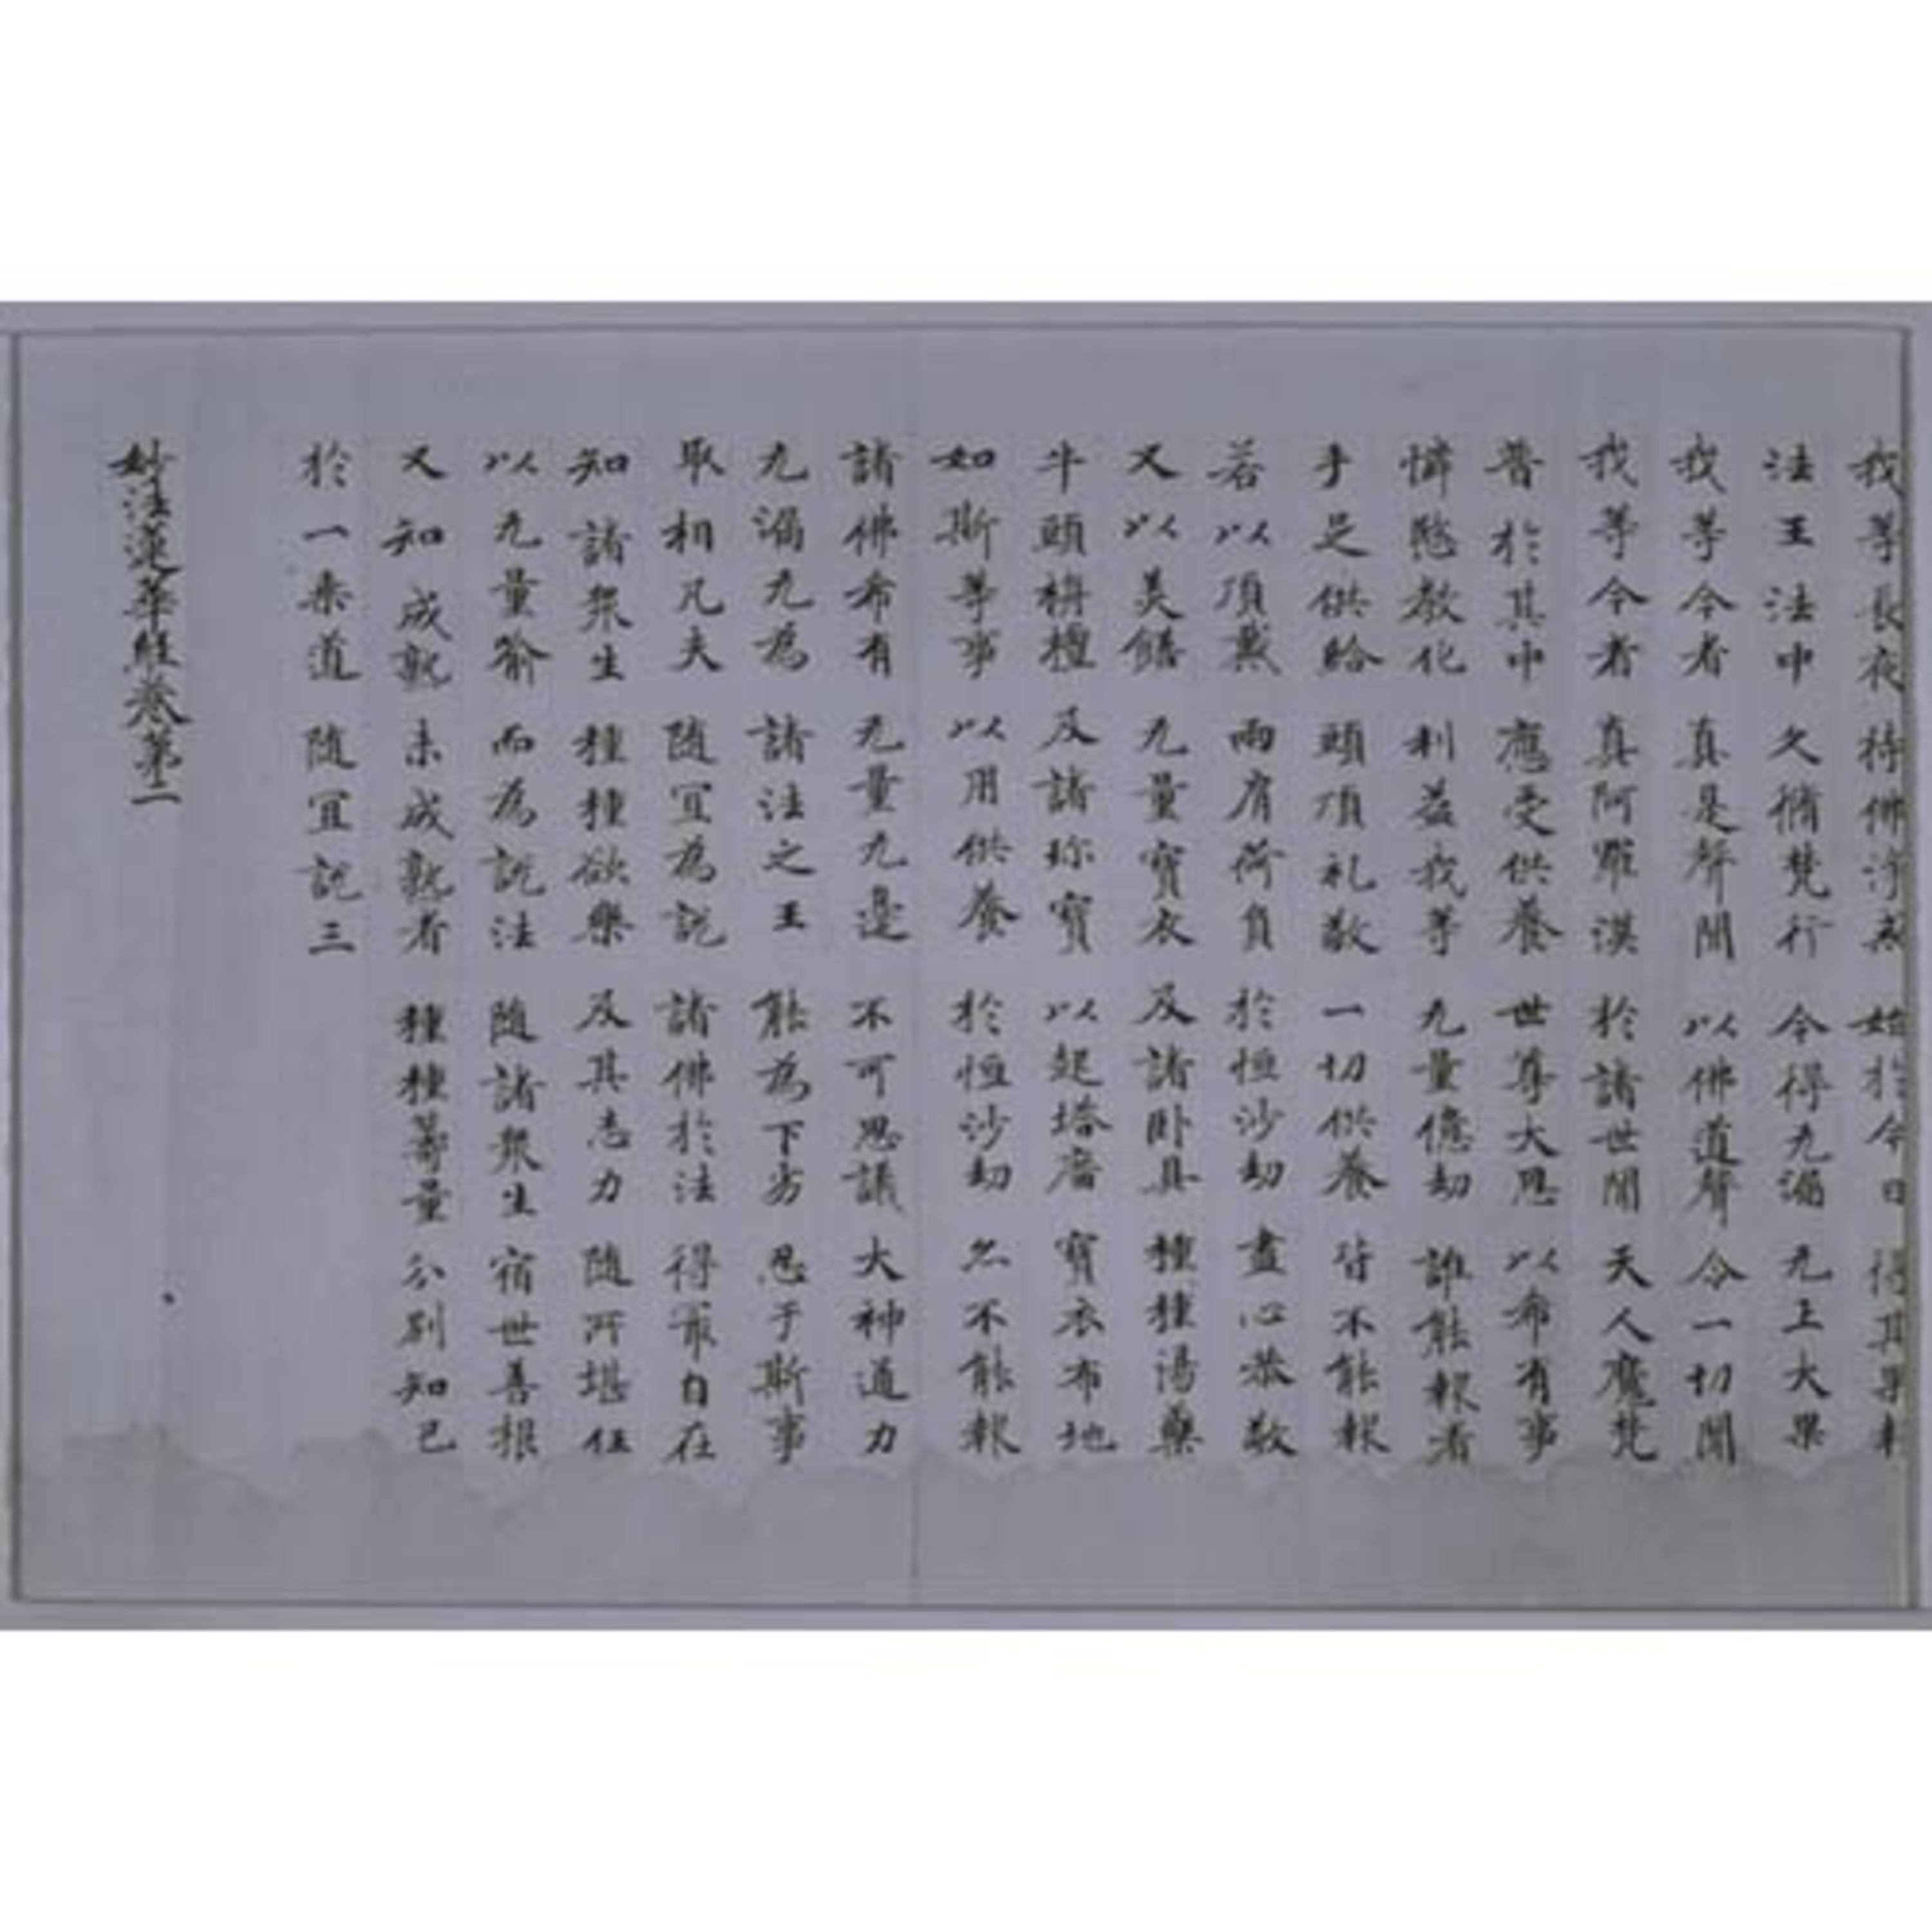 我等長夜 持佛淨戒 始於今日 得其果報
法王法中 久脩梵行 今得无漏 无上大果
我等今者 真是聲聞 以佛道聲 令一切聞
我等今者 真阿羅漢 於諸世間 天人魔梵
普於其中 應受供養 世尊大恩 以希有事
憐愍教化 利益我等 无量億劫 誰能報者
手足供給 頭頂礼敬 一切供養 皆不能報
若以頂戴 兩肩荷負 於恒沙劫 盡心恭敬
又以美饍 无量寶衣 及諸卧具 種種湯藥
牛頭栴檀 及諸珎寶 以起塔廟 寶衣布地
如斯等事 以用供養 於恒沙劫 亦不能報
諸佛希有 无量无邊 不可思議 大神道力
无漏无為 諸法之王 能為下劣 忍于斯事
取相凡夫 随宜為說 諸佛於法 得冣自在
知諸衆生 種種欲樂 及其志力 随所堪任
以无量喻 而為說法 随諸衆生 宿世善根
又知成熟 未成熟者 種種籌量 分別知已
於一乘道 随宜說三
妙法蓮華經卷第二